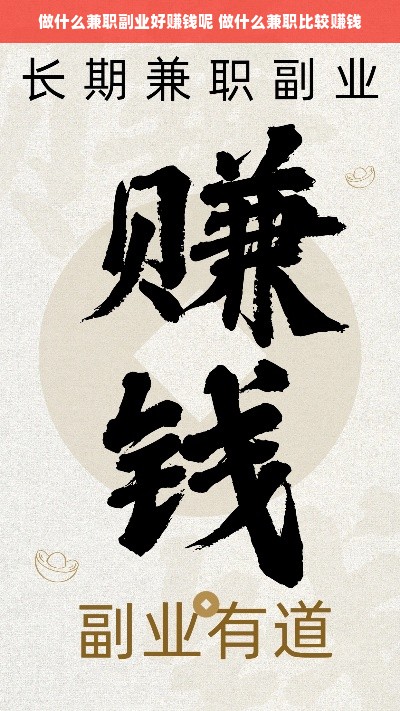 做什么兼职副业好赚钱呢 做什么兼职比较赚钱
长期兼职副业
赚
钱
副业有道